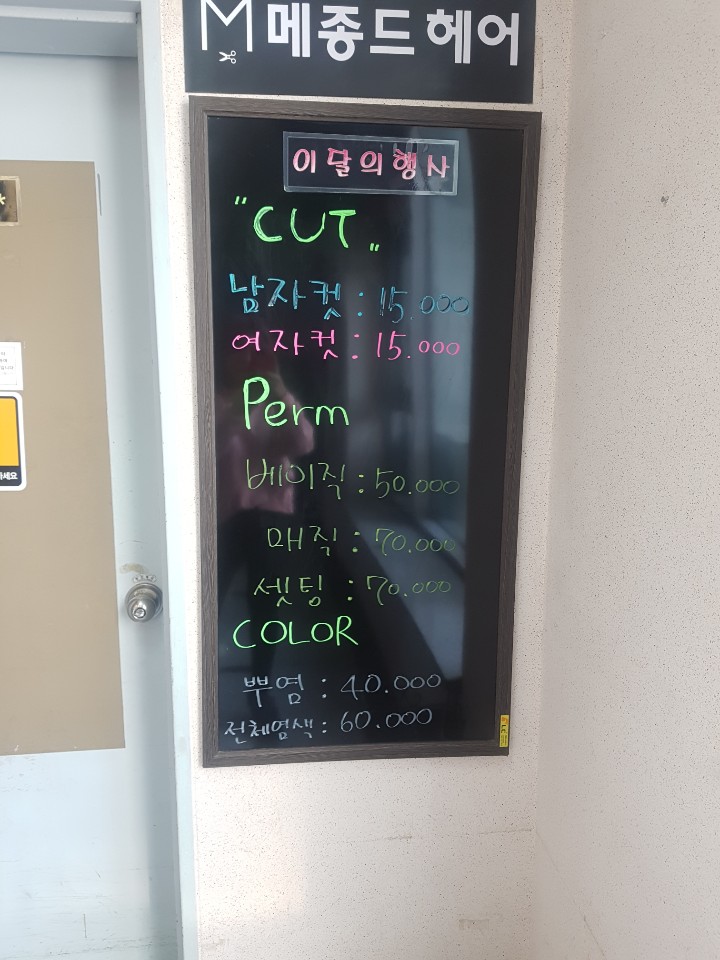 M 메종드헤어
이달의행사
"CUT"
남자컷 : 15.000
여자컷 : 15.000
Perm
베이직 : 50.000
매직 : 70.000
셋팅 : 70.000
COLOR
뿌염 : 40.000
전체염색 : 60.000